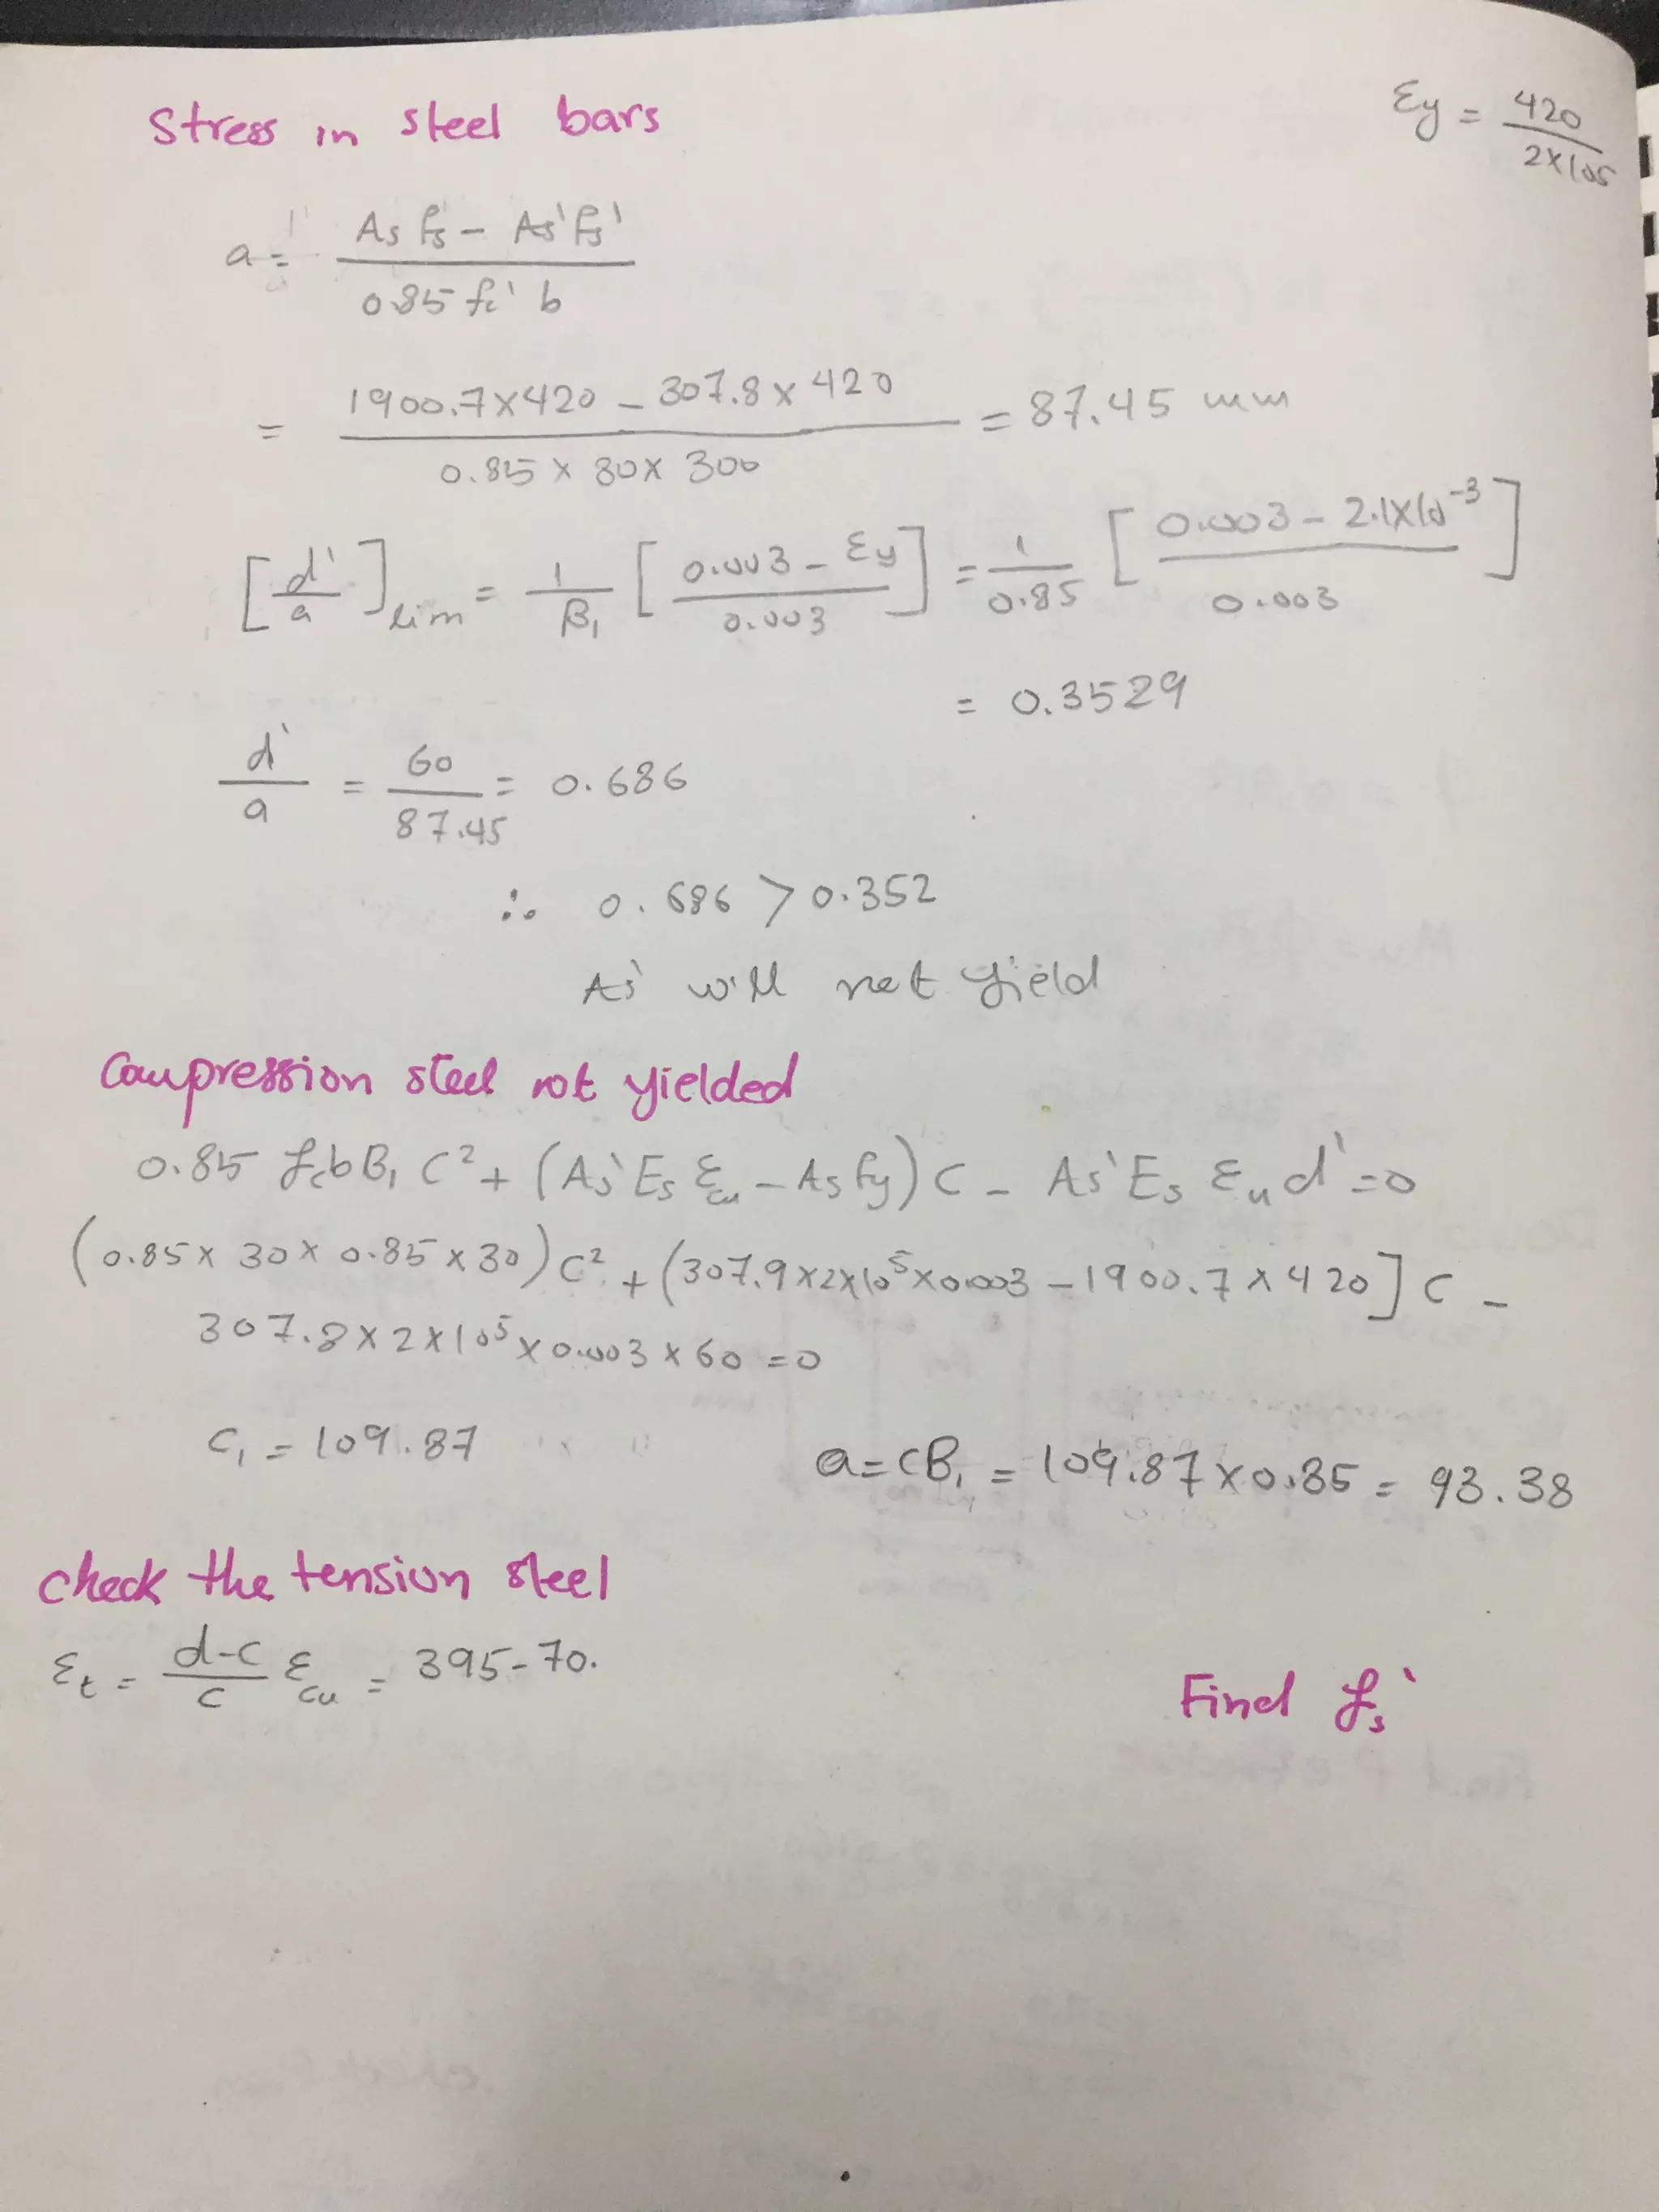 Stress in steel bars
εy = 420 / 2×105
a = As fs - As' fs' / 0.85 fc' b
= 1900.7×420 - 307.8×420 / 0.85 × 30 × 300 = 87.45 mm
[d'/a]lim = 1/β1 [0.003 - εy / 0.003] = 1/0.85 [0.003 - 2.1×10^-3 / 0.003]
= 0.3529
d'/a = 60/87.45 = 0.686
∴ 0.686 > 0.352
As' will not yield
Compression steel not yielded
0.85 fc b B1 C² + (As' Es εcu - As fy) C - As' Es εu d' = 0
(0.85 × 30 × 0.85 × 30) C² + (307.9×2×10^5×0.003 - 1900.7 × 420] C -
307.8 × 2 × 10^5 × 0.003 × 60 = 0
C1 = 109.87
a = CB1 = 109.87 × 0.85 = 93.38
check the tension steel
εt = d-c/c εcu = 395-70.
Find fs'